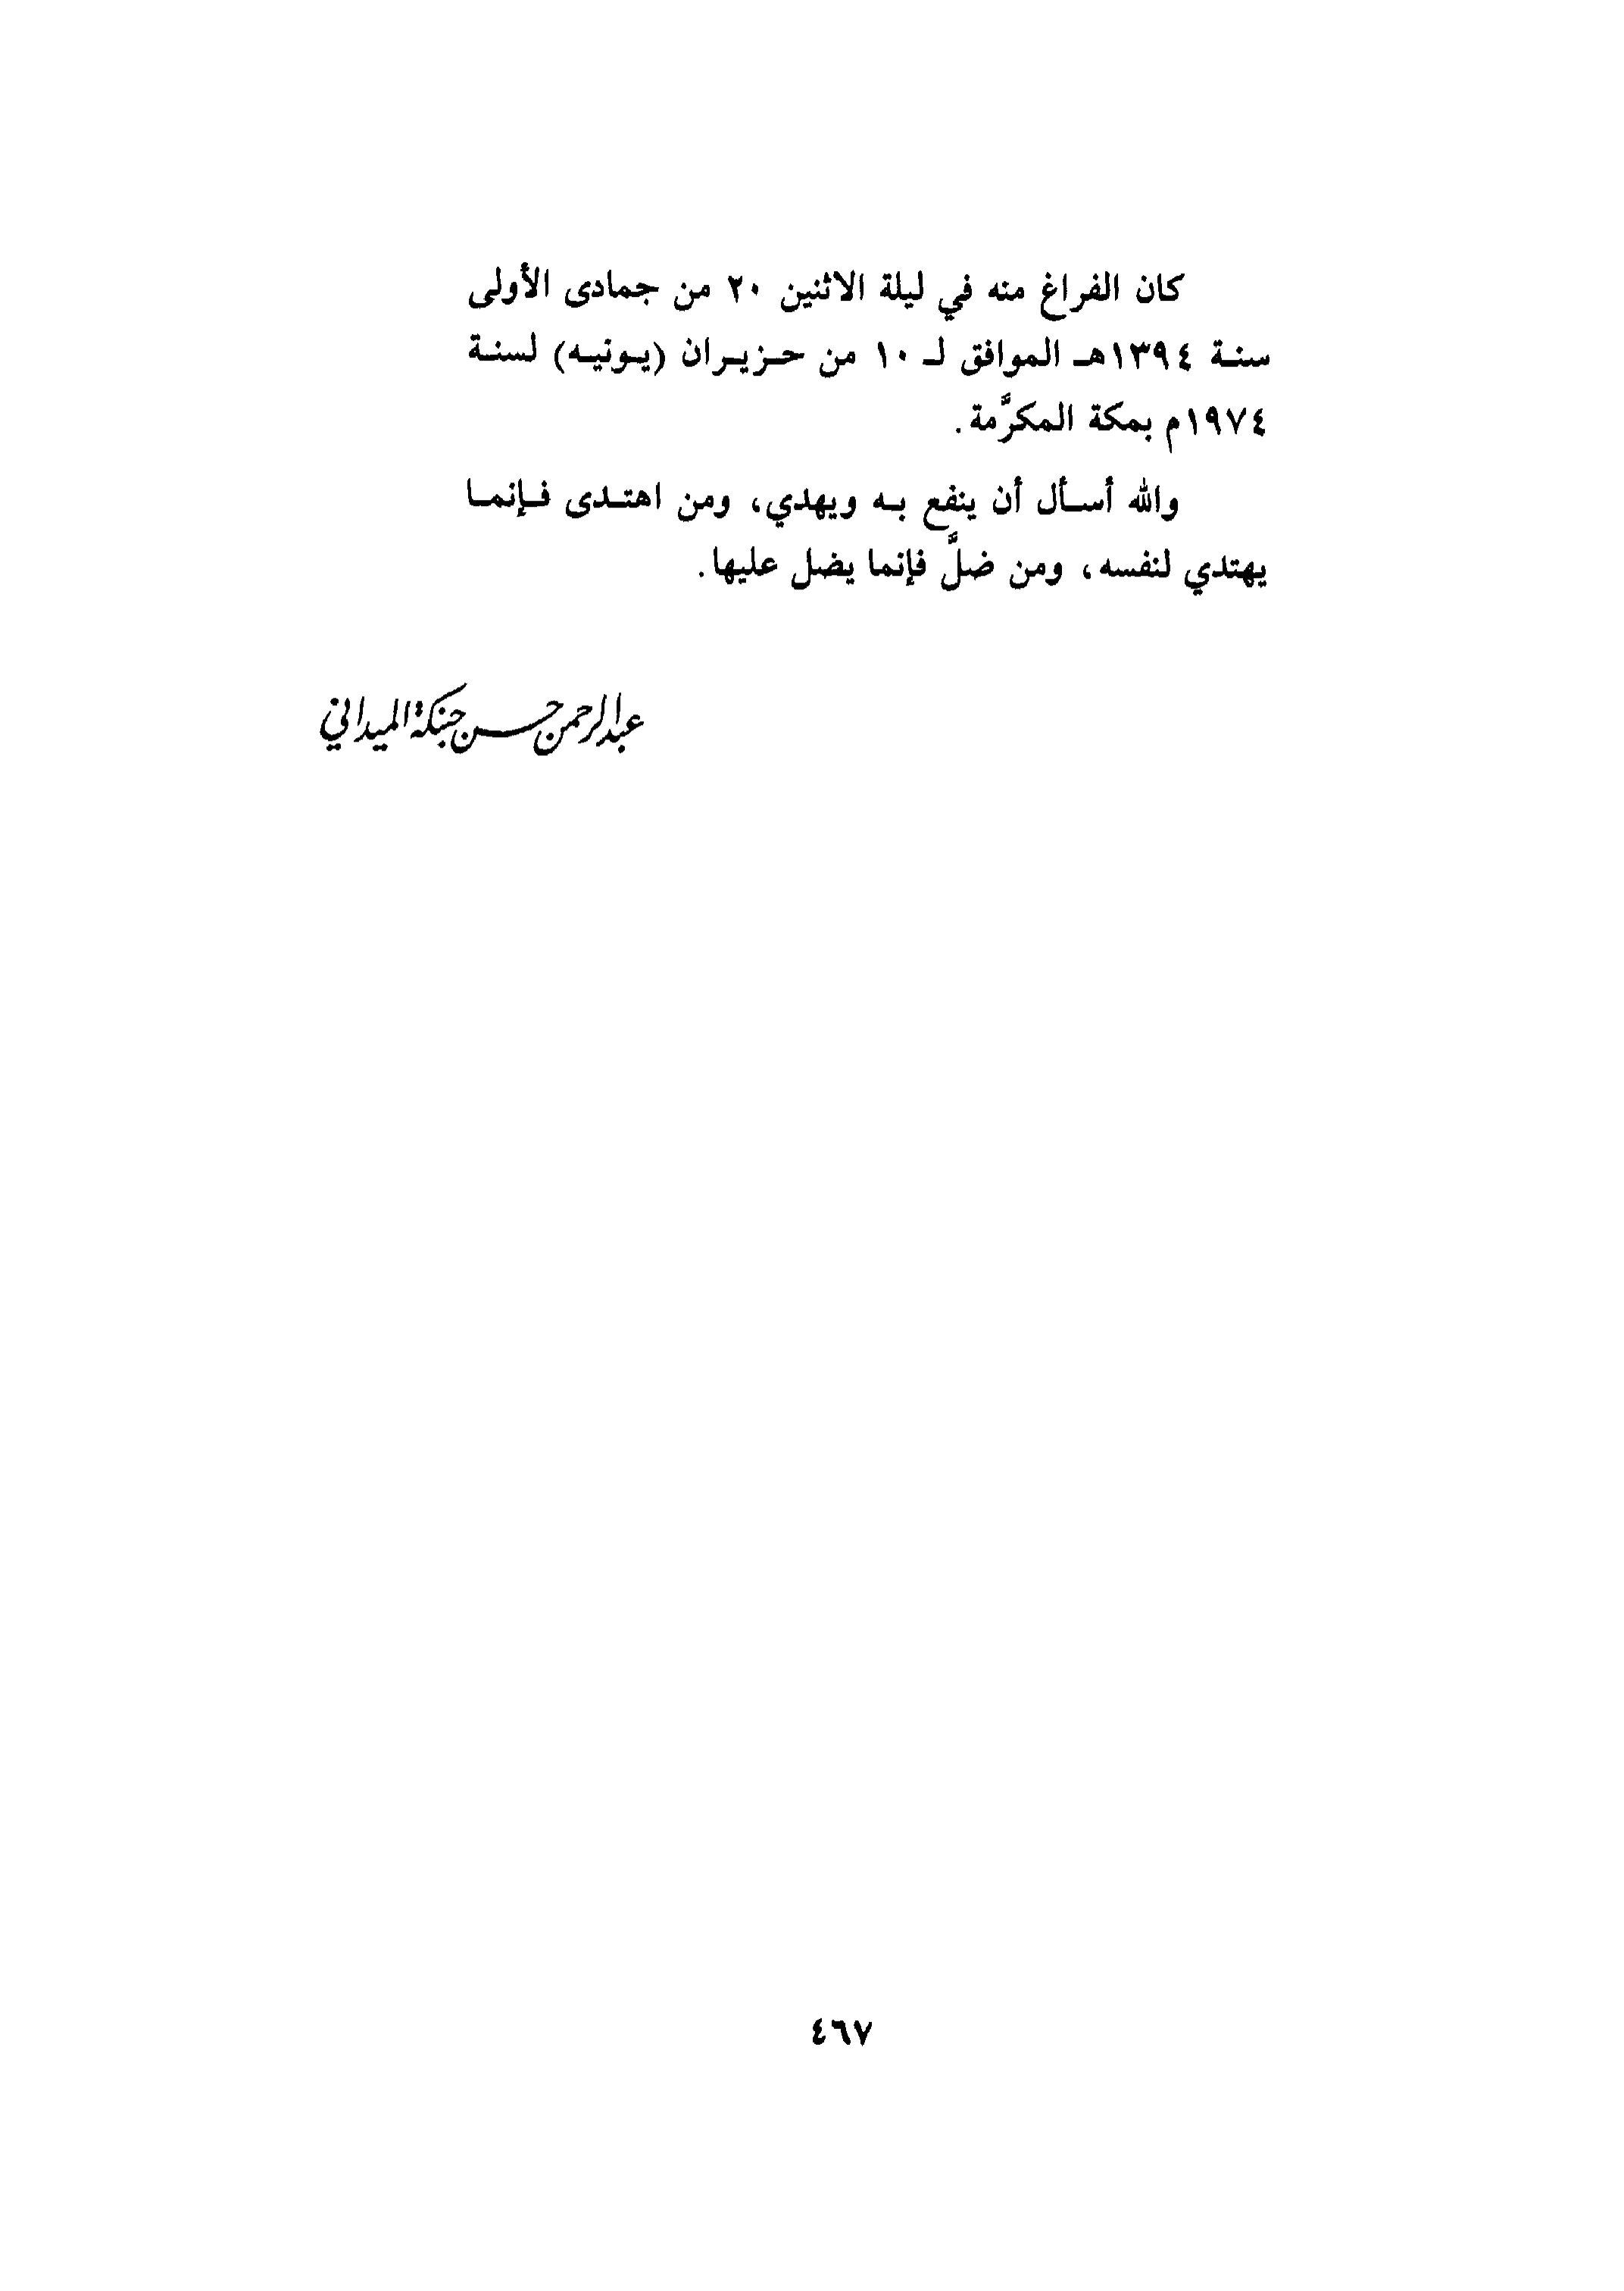 كان الفراغ منه في ليلة الاثنين ٢٠ من جمادى الأولى
سنة ١٣٩٤هـ الموافق لـ ١٠ من حزيران (يونيه) لسنة
١٩٧٤م بمكة المكرَّمة.
والله أسأل أن ينفع به ويهدي، ومن اهتدى فإنما
يهتدي لنفسه، ومن ضلَّ فإنما يضل عليها.
عبد الرحمن حسن حبنكة الميداني
٤٦٧